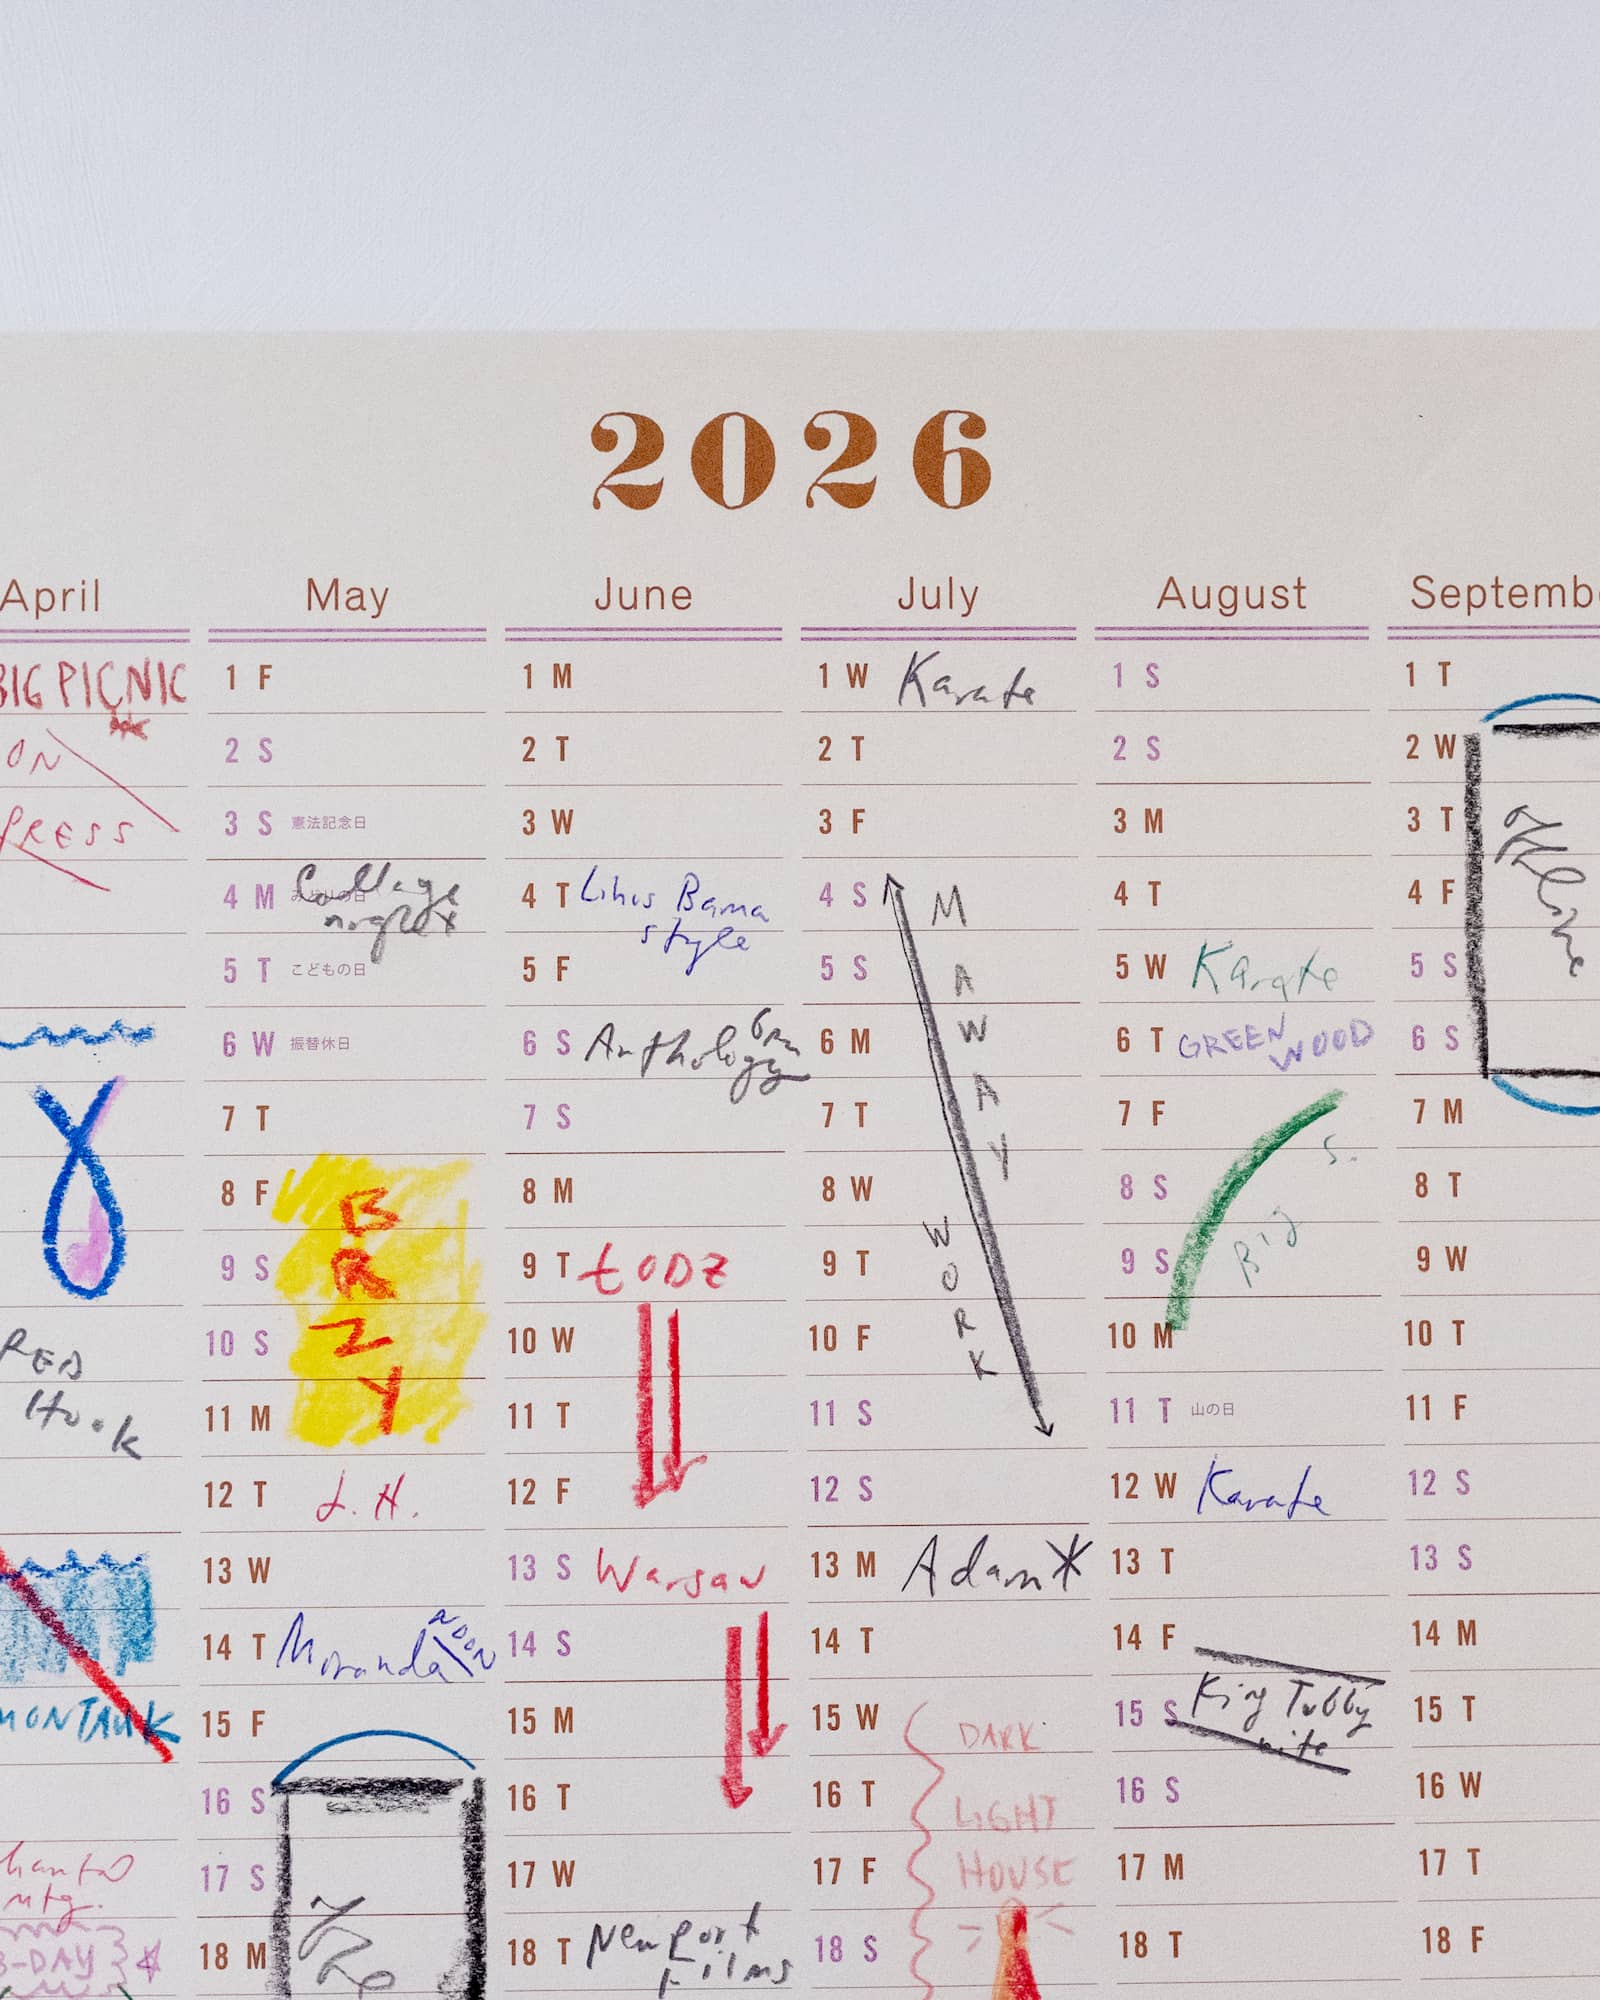 2026
April
BIG PICNIC
ON
PRESS
RED
Hook
MONTAUK
mtg.
B-DAY
May
1 F
2 S
3 S 憲法記念日
4 M みどりの日 Collage
5 T こどもの日
6 W 振替休日
7 T
8 F
9 S
10 S
11 M
BRZY
12 T L.H.
13 W
14 T Moranda NOON
15 F
16 S
17 S
18 M
June
1 M
2 T
3 W
4 T Linus Bama
style
5 F
6 S Anthology 6PM
7 S
8 M
9 T ŁODZ
10 W
11 T
12 F
13 S Warsaw
14 S
15 M
16 T
17 W
18 T Newport
Films
July
1 W Karate
2 T
3 F
4 S
5 S
6 M
7 T
8 W
9 T
10 F
11 S
M AWAY
WORK
12 S
13 M Adam*
14 T
15 W DARK
16 T LIGHT
17 F HOUSE
18 S
August
1 S
2 S
3 M
4 T
5 W Karate
6 T GREEN
WOOD
7 F
8 S
9 S
Big S.
10 M
11 T 山の日
12 W Karate
13 T
14 F
15 S King Tubby
nite
16 S
17 M
18 T
Septemb
1 T
2 W
3 T
4 F
5 S
6 S
7 M
8 T
9 W
10 T
11 F
12 S
13 S
14 M
15 T
16 W
17 T
18 F